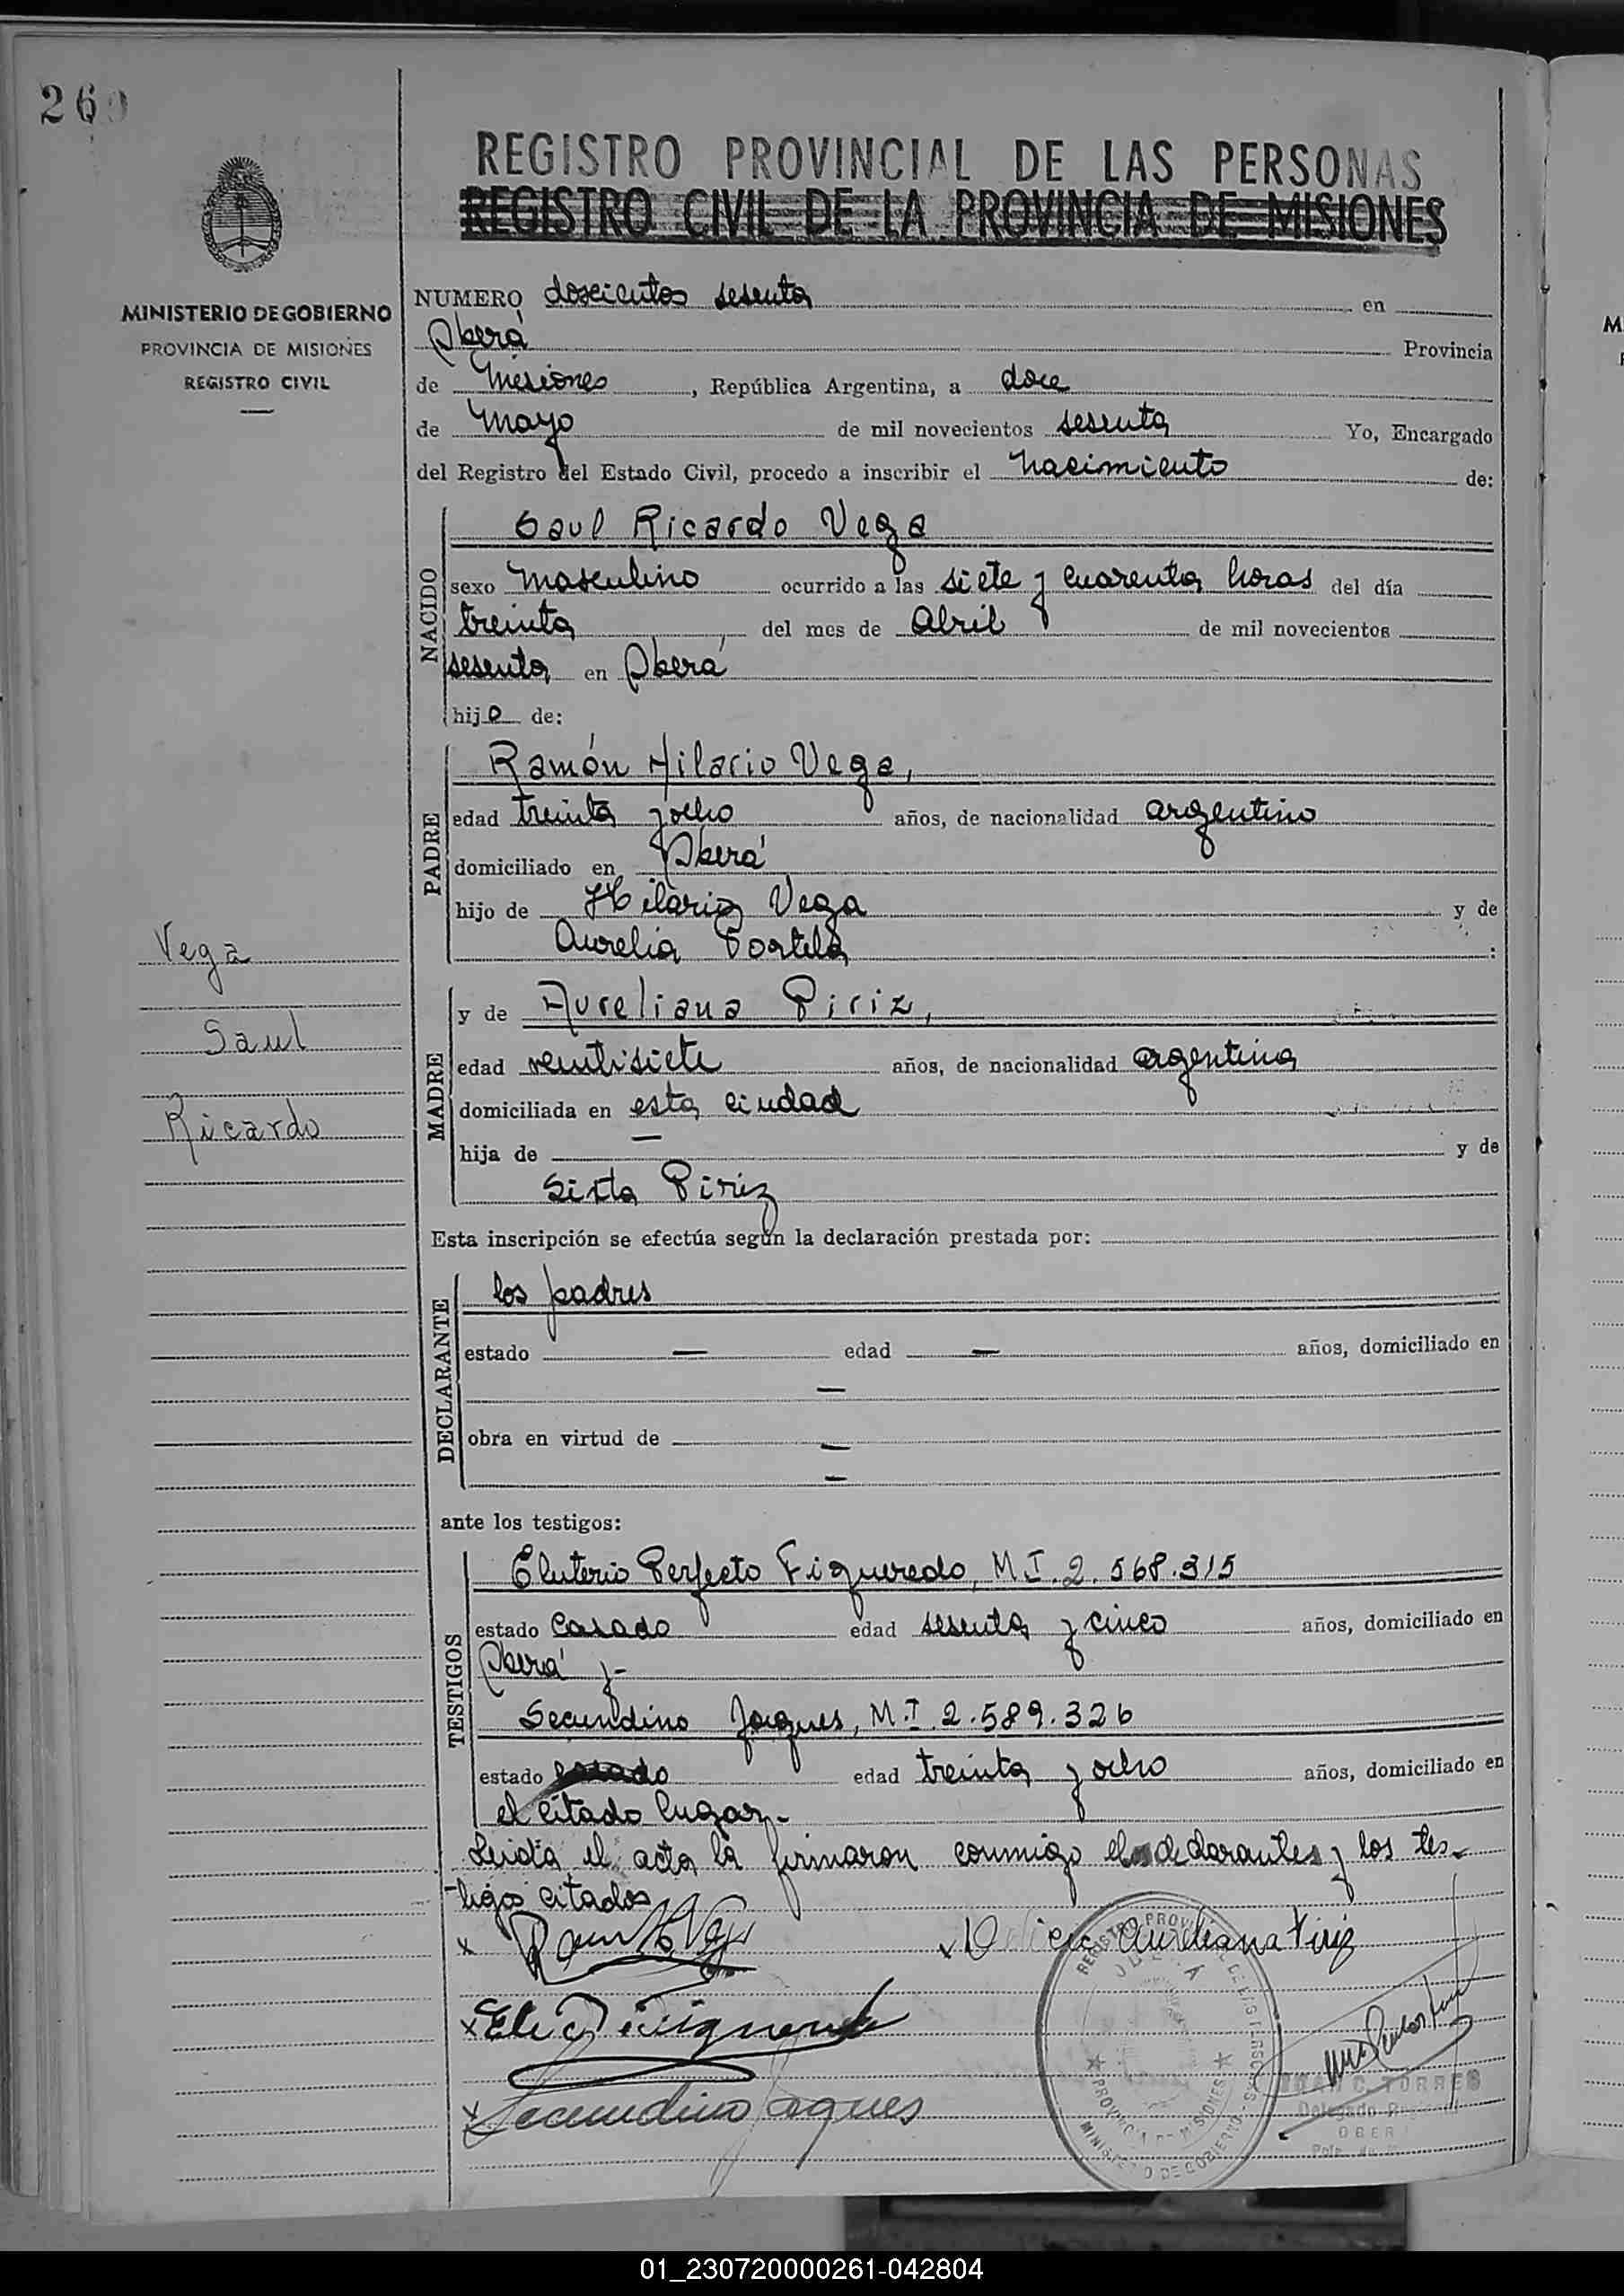 260
REGISTRO PROVINCIAL DE LAS PERSONAS
REGISTRO CIVIL DE LA PROVINCIA DE MISIONES
MINISTERIO DE GOBIERNO
PROVINCIA DE MISIONES
REGISTRO CIVIL
NUMERO doscientos sesenta en
Oberá Provincia
de Misiones, República Argentina, a doce
de Mayo de mil novecientos sesenta Yo, Encargado
del Registro del Estado Civil, procedo a inscribir el nacimiento de:
NACIDO
Saul Ricardo Vega
sexo masculino ocurrido a las siete y cuarenta horas del día
treinta, del mes de Abril de mil novecientos
sesenta en Oberá
hijo de:
PADRE
Ramón Hilario Vega,
edad treinta y ocho años, de nacionalidad argentino
domiciliado en Oberá
hijo de Hilario Vega y de
Aurelia Portela :
MADRE
y de Aureliana Piriz,
edad veintisiete años, de nacionalidad argentina
domiciliada en esta ciudad
hija de — y de
Sixta Piriz
Vega
Saul
Ricardo
Esta inscripción se efectúa según la declaración prestada por:
DECLARANTE
los padres
estado — edad — años, domiciliado en
—
obra en virtud de —
—
ante los testigos:
TESTIGOS
Eluterio Perfecto Figueredo, M.I. 2.568.315
estado Casado edad sesenta y cinco años, domiciliado en
Oberá y-
Secundino Jaques, M.I. 2.589.326
estado casado edad treinta y ocho años, domiciliado en
el citado lugar.-
Leida el acta la firmaron conmigo los declarantes y los tes-
tigos citados
x x Aureliana Piriz
x
x Secundino Jaques
REGISTRO PROVINCIAL DE LAS PERSONAS
OBERÁ
PROVINCIA DE MISIONES
MINISTERIO DE GOBIERNO
C. TORRES
Delegado
OBERA
01_230720000261-042804